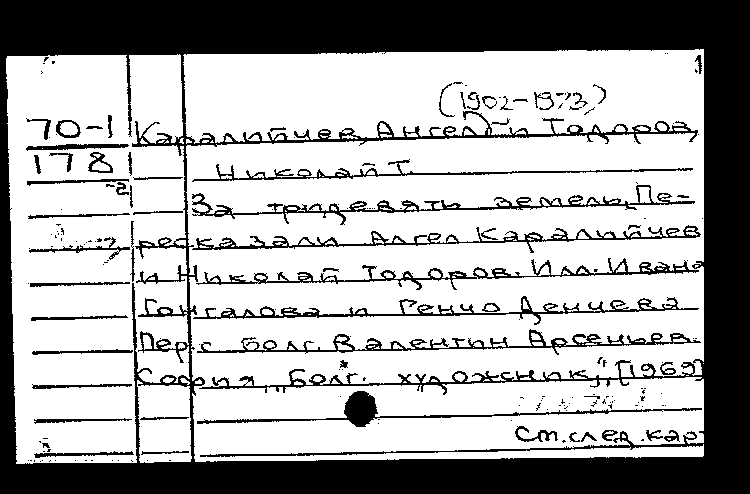 (1902-1973)
70-1 Каралийчев, Ангел и Тодоров,
178 Николай Т.
-2
За тридевять земель. Пе-
ресказали Ангел Каралийчев
и Николай Тодоров. Илл. Ивана
Гонгалова и Генчо Денчева
Пер. с болг. Валентин Арсеньев.
София, "Болг. художник", [1969]
См. след. кар